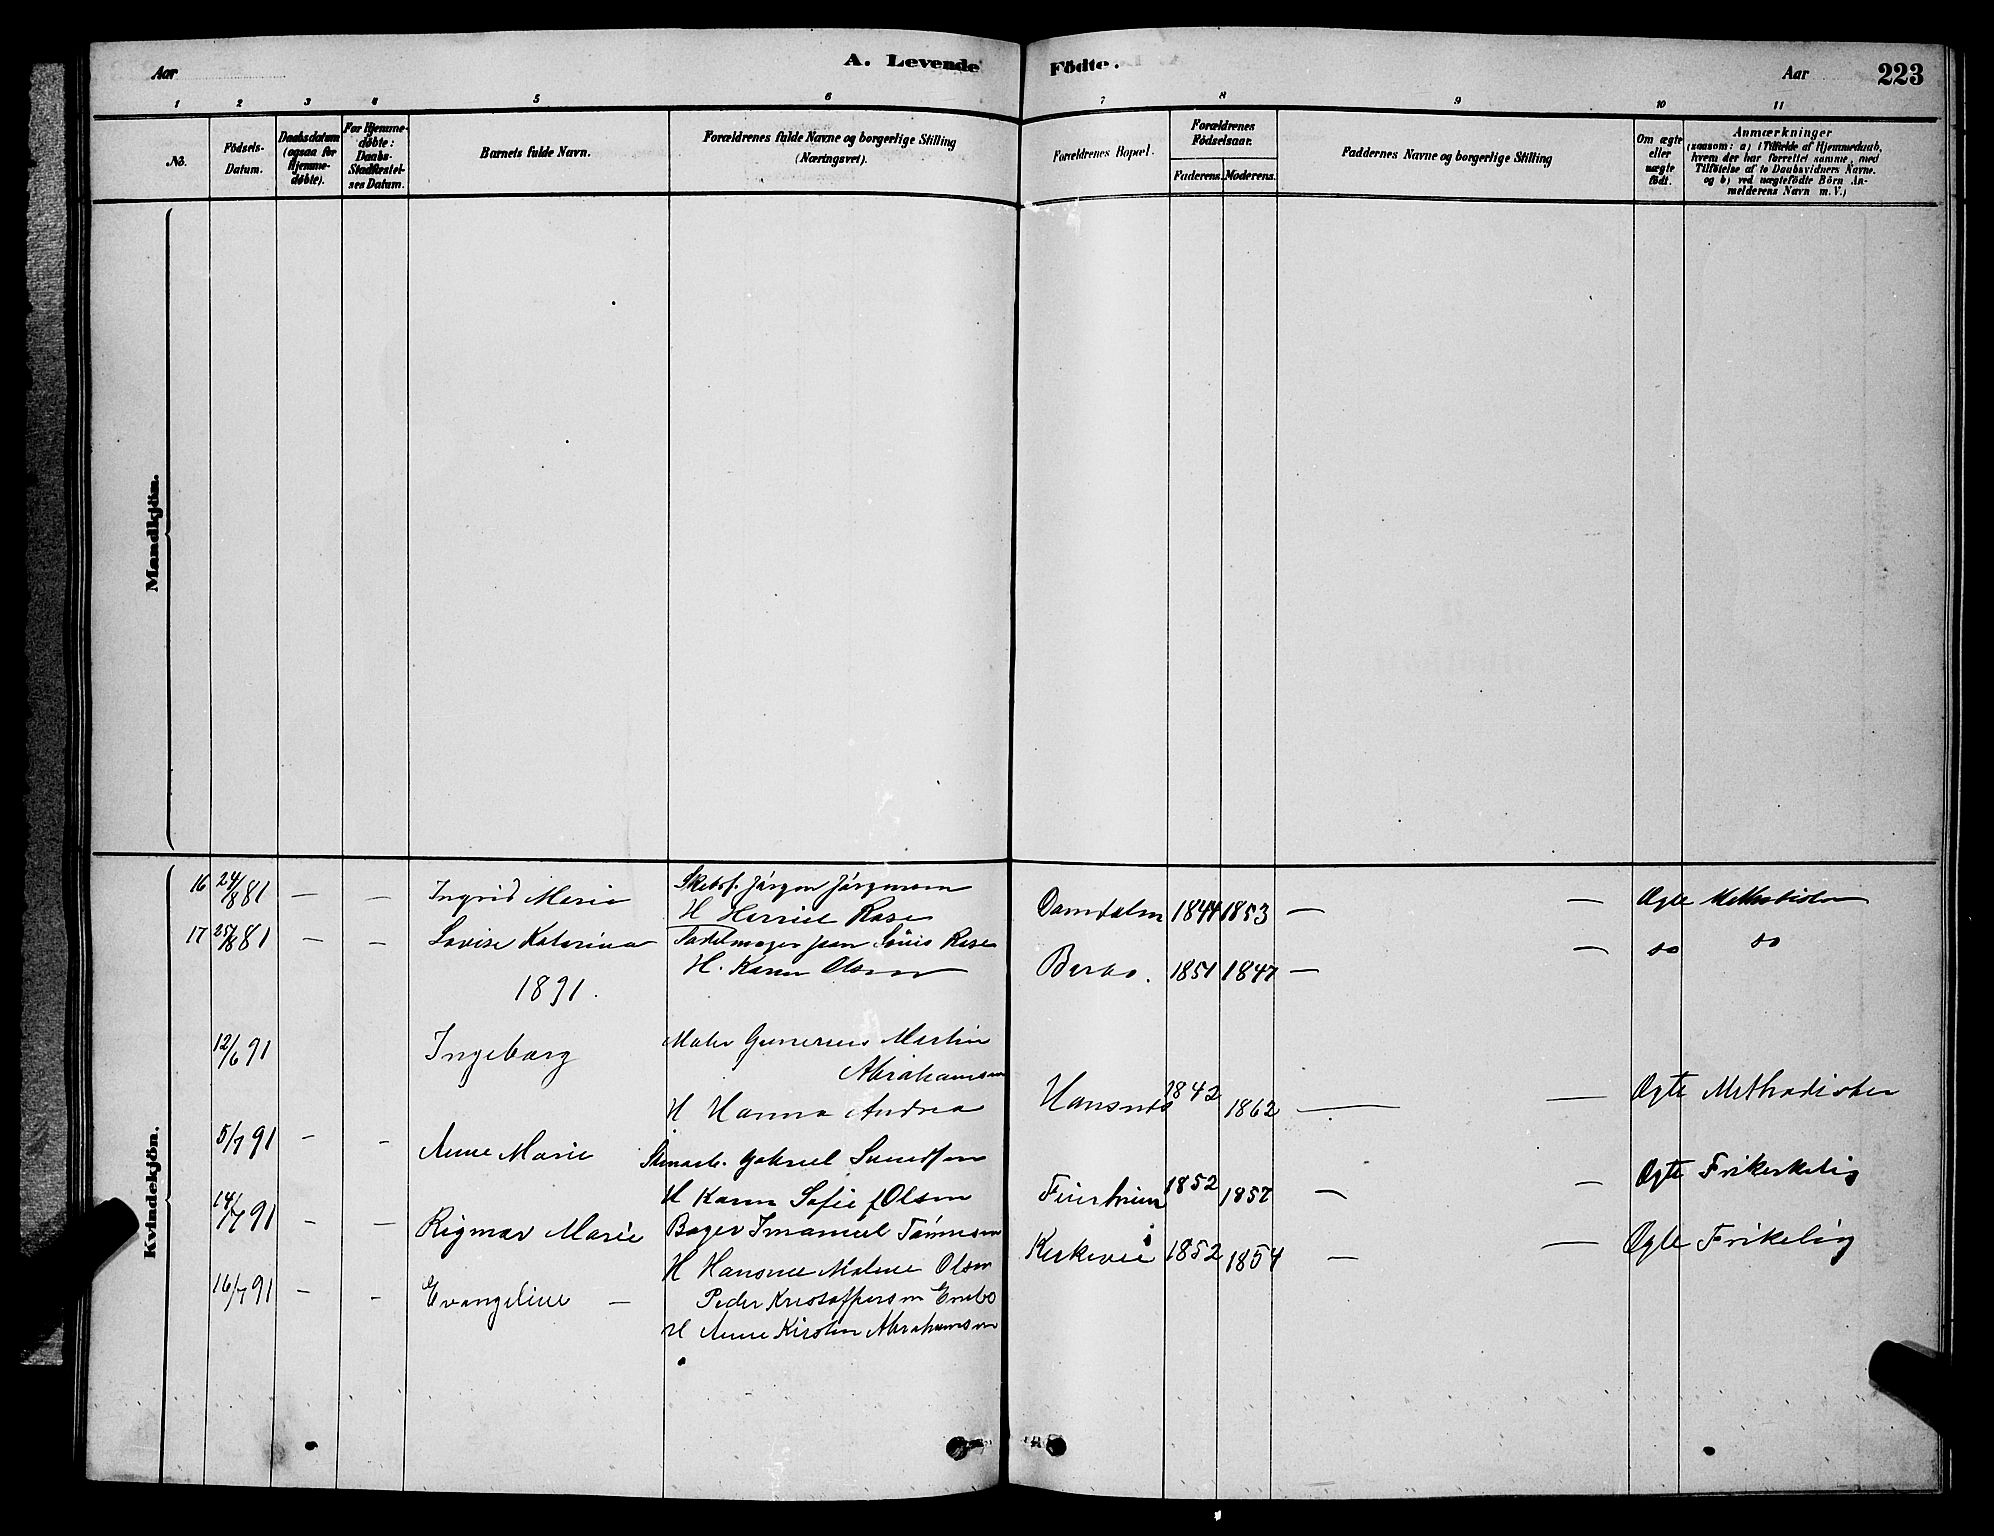 Aar
A. Levende
Födte.
Aar
223
1 2 3 4 5 6 7 8 9 10 11
No.
Födsels-
Datum.
Daabsdatum
(ogsaa for
Hjemme-
døbte).
For Hjemme-
døbte:
Daabs-
Stadfæstel-
ses Datum.
Barnets fulde Navn.
Forældrenes fulde Navne og borgerlige Stilling
(Næringsvei).
Forældrenes Bopæl.
Forældrenes
Födselsaar.
Faderens. Moderens.
Faddernes Navne og borgerlige Stilling
Om ægte
eller
uægte
födt.
Anmærkninger
(saasom: a) i Tilfælde af Hjemmedaab,
hvem der har forrettet samme, med
Tilföielse af to Daabsvidners Navne.
og b) ved uægtefödte Börn An-
melderens Navn m. V.)
Mandkjön.
Kvindekjön.
16 24/8 81 — — Ingrid Marie Jörgen Jörgensen
H Rase 1844 1853 — — Ægte
17 25/8 81 — — Lovise Katarina Rase
H. Karen Olsen 1851 1847 — — do do
1891.
12/6 91 Ingeborg Martin
Abrahamsen
H Hanna Andrea Hansnes 1842 1862 — — Ægte Methodister
5/7 91 — — Anne Marie Gabriel
H Karen Sofie f Olsen 1852 1857 — — Ægte Frikirkelig
14/7 91 — — Rigmor Marie Bager Imanuel Tönnesen
H Malene Olsen Kirkevei 1852 1854 — — Ægte Frikelig
16/7 91 — — Evangeline — Peder Kristoffersen Enebo
H Anne Kirstin Abrahamsen